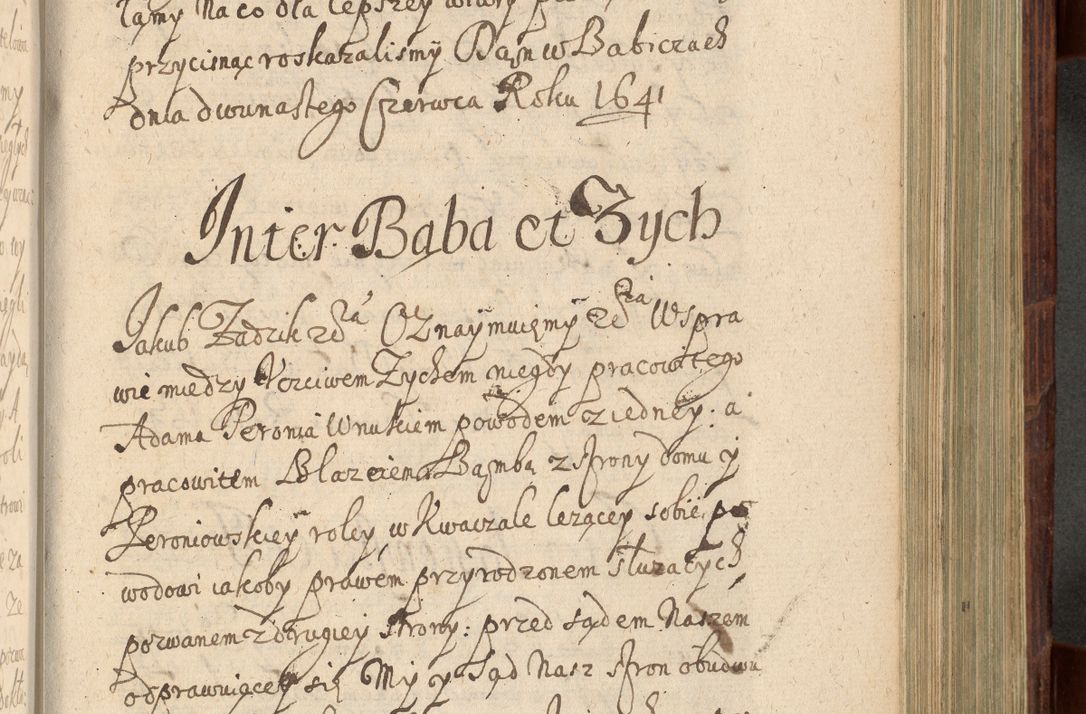 łąmy Na co dla lepszey wiary
przycisnąc roskazalismÿ Dąn w Babiczach
dnia dwunastego Czerwca Roku 1641
Inter Bąba et Zych
Jakub Zadzik etc Oznaÿmuięmÿ etc W spra
wie między Uczciwem Zychem niegdy pracowitego
Adama Peronia Wnukiem powodem z iedneÿ: a
pracowitem Błazeiem Bąmbą z strony domu ÿ
Peroniowskieÿ roley w Kwaczale lezącey sobie po
wodowi iakoby prawem przyrodzonem słuzących
pozwanem z drugiey strony: przed sądem Naszem
odprawuiącey się Mÿ ÿ sąd Nasz stron obudwu